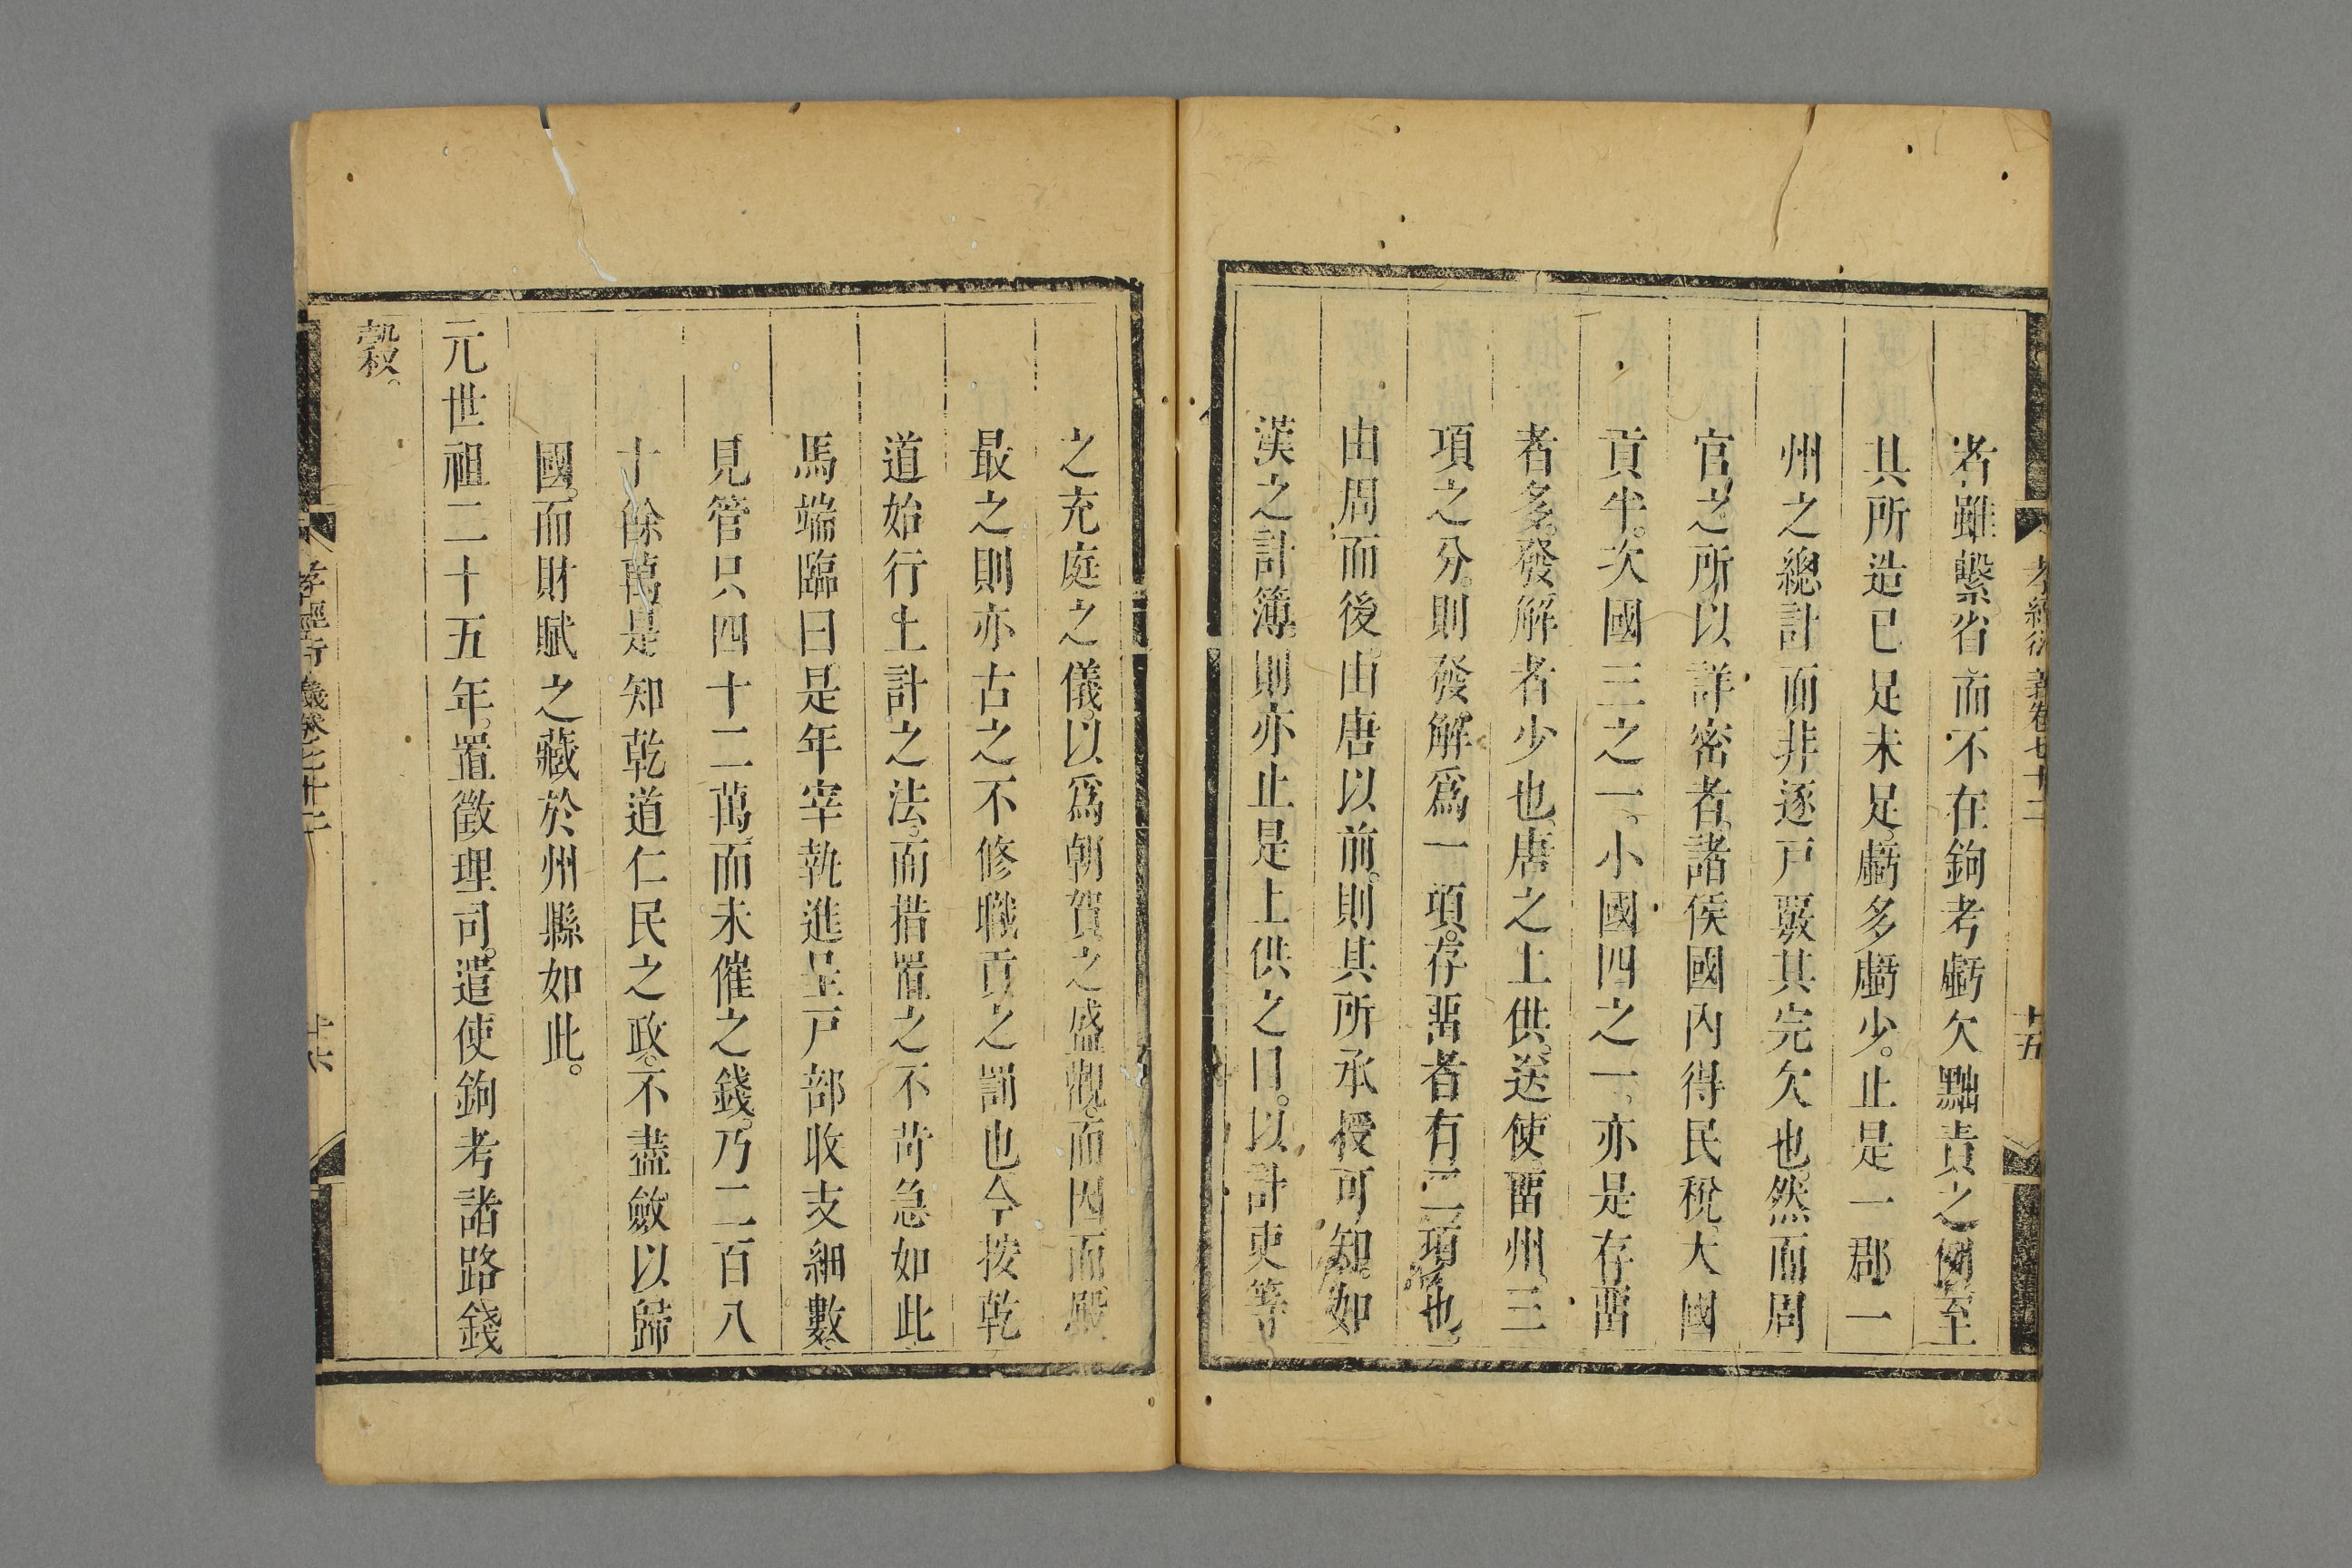 孝經衍義卷七十二 十五
者雖繫省而不在鉤考虧欠黜責之例至
其所造已足未足虧多虧少。止是一郡一
州之總計而非逐戸覈其完欠也。然而周
官之所以詳密者。諸侯國內得民稅。大國
貢半。次國三之一。小國四之一。亦是存畱
者多。發解者少也。唐之上供。送使畱州三
項之分。則發解爲一項。存畱者有二項也。
由周而後。由唐以前。則其所承授可知。如
漢之計簿。則亦止是上供之目。以計吏等
之充庭之儀。以爲朝賀之盛觀。而因而殿
最之則亦古之不修職貢之罰也今按乾
道始行上計之法。而措置之不苛急如此
馬端臨曰是年宰執進呈戸部收支細數
見管只四十二萬而未催之錢。乃二百八
十餘萬是知乾道仁民之政。不盡斂以歸
國。而財賦之藏於州縣如此。
元世祖二十五年。置徵理司。遣使鉤考諸路錢
穀。
孝經衍義卷七十二 十六